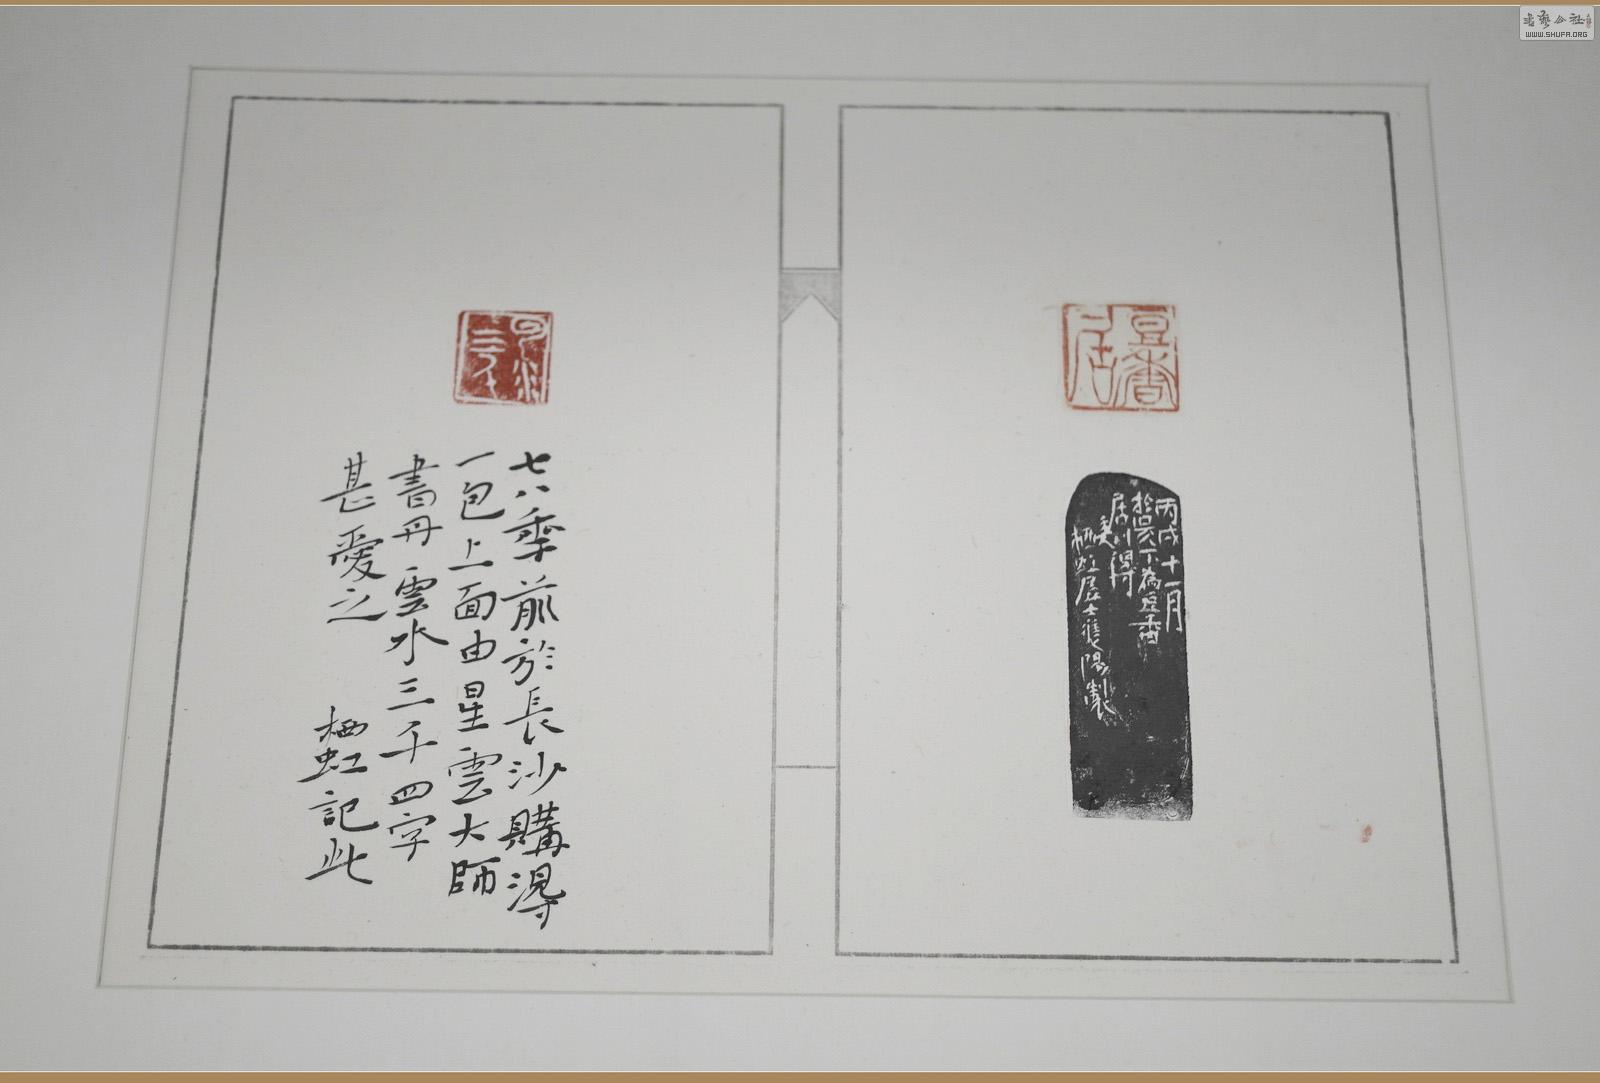 豆香居
丙戌十一月
於吳下為豆香
居川得
栖虹居士
製
雲水三千
七八秊前於長沙購得
一包上面由星雲大師
書丹雲水三千四字
甚愛之
栖虹記此
書藝公社
WWW.SHUFA.ORG